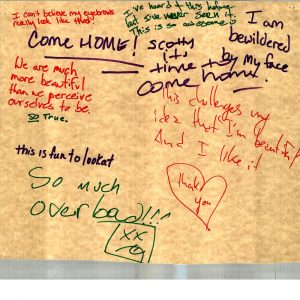 I can't believe my eyebrows
really look like that!
I've heard of this before
but I've never seen it.
This is so awesome.
I am
bewildered
by my face
COME HOME!
Scotty
it's
time to
come home
We are much
more beautiful
than we perceive
ourselves to be.
so True.
This challenges my
idea that I'm beautiful
And I like it
thank
you
this is fun to look at
So much
overbad!!!
XX